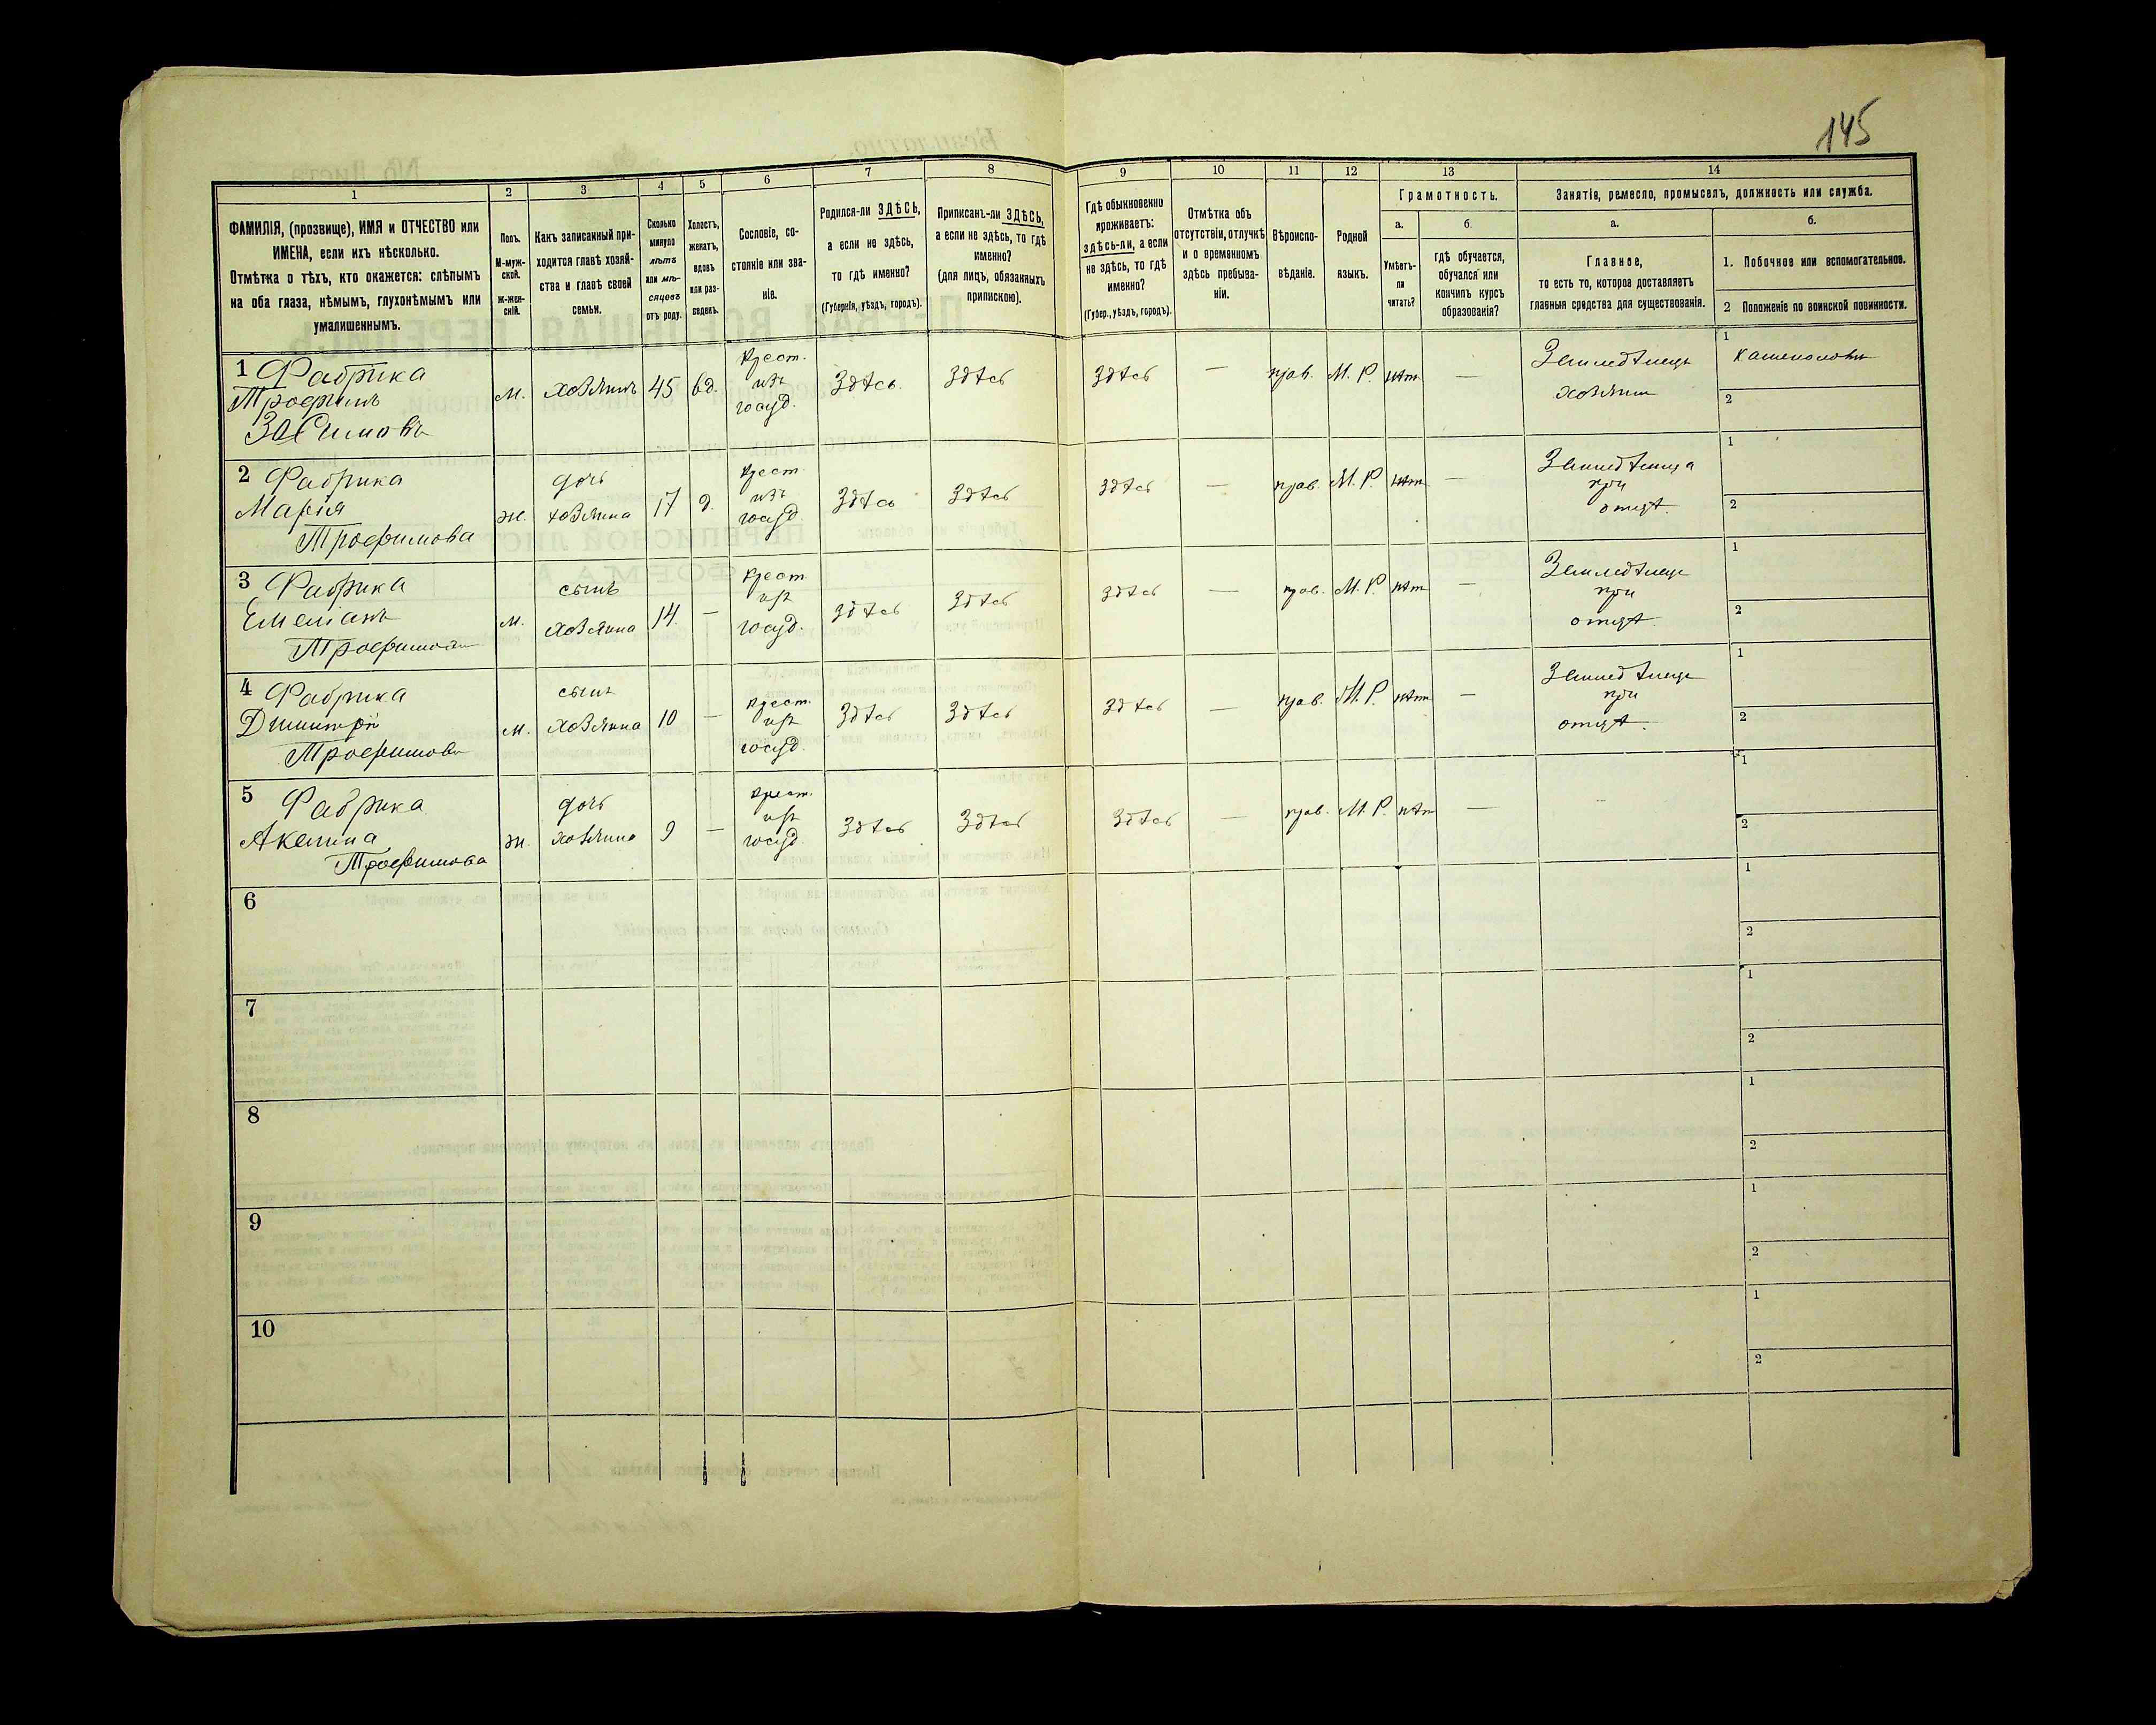 145
1
2
3
4
5
6
7
8
9
10
11
12
13
14
ФАМИЛІЯ, (прозвище), ИМЯ и ОТЧЕСТВО или
ИМЕНА, если ихъ нѣсколько.
Отмѣтка о тѣхъ, кто окажется: слѣпымъ
на оба глаза, нѣмымъ, глухонѣмымъ или
умалишеннымъ.
Полъ.
М-муж-
ской.
Ж-жен-
скій.
Какъ записанный при-
ходится главѣ хозяй-
ства и главѣ своей
семьи.
Сколько
минуло
лѣтъ
или мѣ-
сяцевъ
отъ роду.
Холостъ,
женатъ,
вдовъ
или раз-
веденъ.
Сословіе, со-
стояніе или зва-
ніе.
Родился-ли ЗДѢСЬ,
а если не здѣсь,
то гдѣ именно?
(Губернія, уѣздъ, городъ).
Приписанъ-ли ЗДѢСЬ,
а если не здѣсь, то гдѣ
именно?
(для лицъ, обязанныхъ
припискою).
Гдѣ обыкновенно
проживаетъ:
здѣсь-ли, а если
не здѣсь, то гдѣ
именно?
(Губер., уѣздъ, городъ).
Отмѣтка объ
отсутствіи, отлучкѣ
и о временномъ
здѣсь пребыва-
ніи.
Вѣроиспо-
вѣданіе.
Родной
языкъ.
Грамотность.
а.
Умѣетъ-
ли
читать?
б.
гдѣ обучается,
обучался или
кончилъ курсъ
образованія?
Занятія, ремесло, промыселъ, должность или служба.
а.
Главное,
то есть то, которое доставляетъ
главныя средства для существованія.
б.
1. Побочное или вспомогательное.
2 Положеніе по воинской повинности.
1 Фабрика
Трофимъ
Засимовъ
м. хозяинъ 45 вд.
крест.
изъ
госуд.
Здѣсь. Здѣсь Здѣсь — прав. М. Р. нѣт —
Земледѣлецъ
хозяинъ
1
2
2 Фабрика
Марія
Трофимова
ж.
дочь
хозяина
17 д.
крест.
изъ
госуд.
Здѣсь Здѣсь Здѣсь — прав. М. Р. нѣт —
Земледѣлица
при
отцѣ.
1
2
3 Фабрика
Емеліанъ
Трофимовъ
м.
сынъ
хозяина
14. —
крест.
изъ
госуд.
Здѣсь Здѣсь Здѣсь — прав. М. Р. нѣт —
Земледѣлецъ
при
отцѣ.
1
2
4 Фабрика
Димитрій
Трофимовъ
м.
сынъ
хозяина
10 —
крест.
изъ
госуд.
Здѣсь Здѣсь Здѣсь — прав. М. Р. нѣт —
Земледѣлецъ
при
отцѣ.
1
2
5 Фабрика
Акелина
Трофимова
ж.
дочь
хозяина
9 —
крест.
изъ
госуд.
Здѣсь Здѣсь Здѣсь — прав. М. Р. нѣт — -
1
2
6
1
2
7
1
2
8
1
2
9
1
2
10
1
2